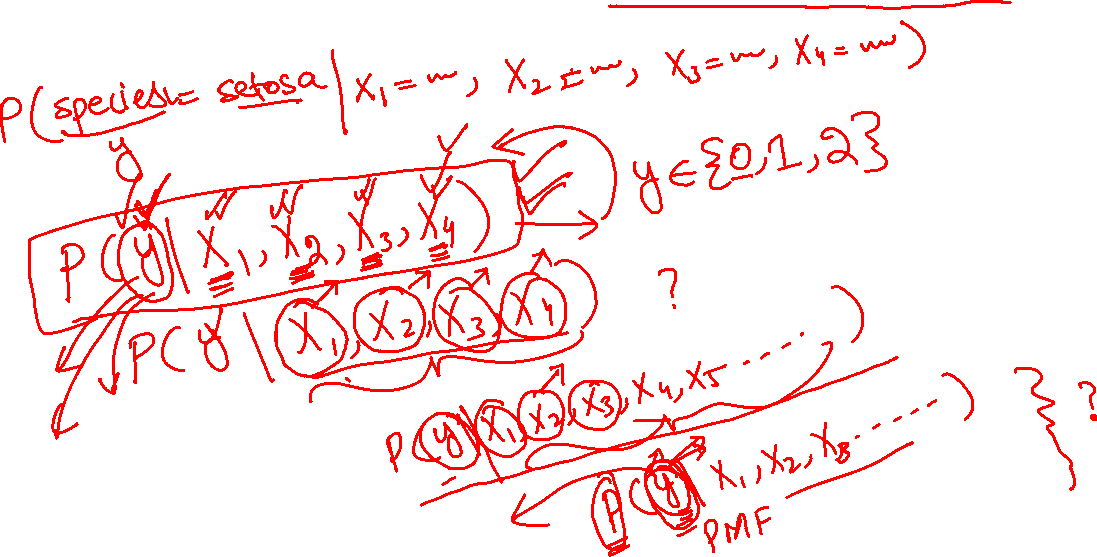 P(species = setosa | X₁ = ~, X₂ = ~, X₃ = ~, X₄ = ~)
y
y ∈ {0,1,2}
P(y | X₁, X₂, X₃, X₄)
P(y | X₁, X₂, X₃, X₄) ?
P(y | X₁, X₂, X₃, X₄, X5 ------ )
P(y X₁, X₂, X₃ ------ ) } ?
PMF